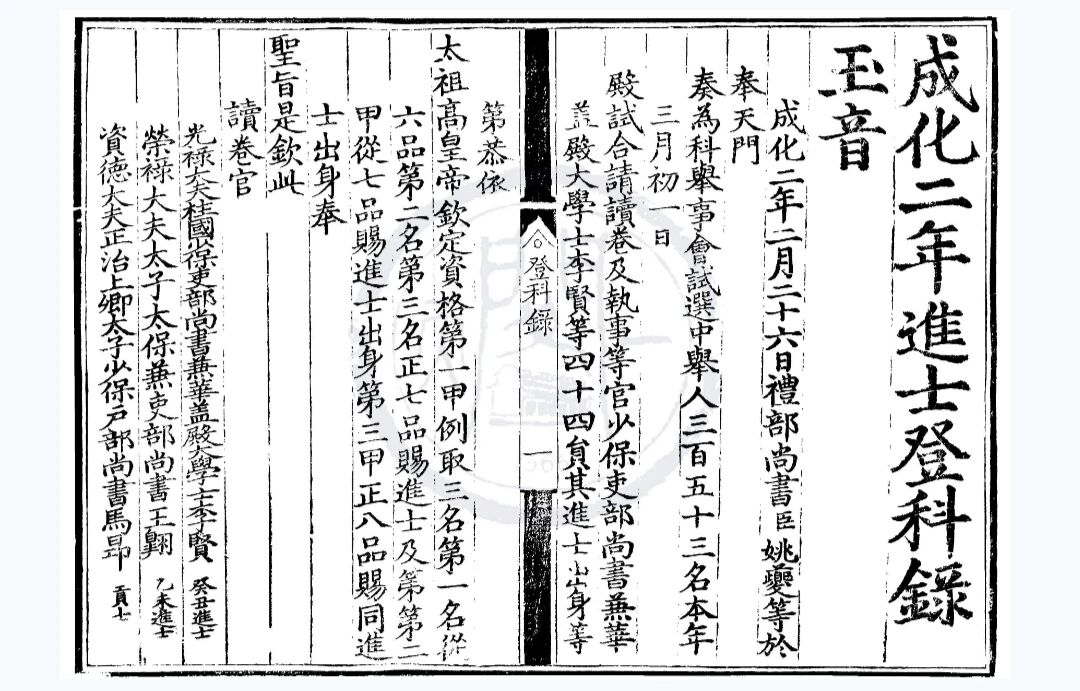 成化二年進士登科録
玉音
成化二年二月二十六日禮部尚書臣姚夔等於
奉天門
奏為科舉事會試選中舉人三百五十三名本年
三月初一日
殿試合請讀卷及執事等官少保吏部尚書兼華
盖殿大學士李賢等四十四員其進士出身等
登科録
一
第恭依
太祖高皇帝欽定資格第一甲例取三名第一名從
六品第二名第三名正七品賜進士及第第二
甲從七品賜進士出身第三甲正八品賜同進
士出身奉
聖旨是欽此
讀卷官
光禄大夫柱國少保吏部尚書兼華盖殿大學士李賢 癸丑進士
榮禄大夫太子太保兼吏部尚書王翺 乙未進士
資德大夫正治上卿太子少保户部尚書馬昻 貢士